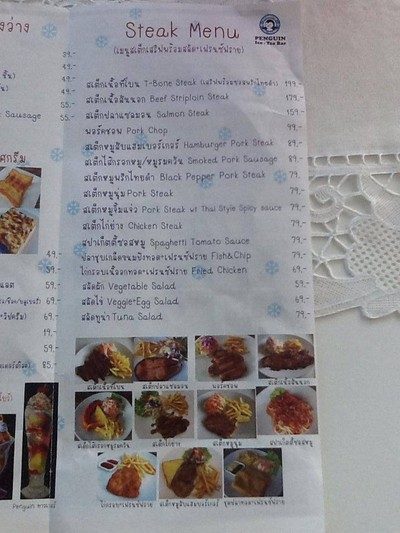 Steak Menu
PENGUIN
(เมนูสเต็กเสริฟพร้อมสลัด+เฟรนซ์ฟราย)
สเต็กเนื้อทีโบน T-Bone Steak (เสริฟพร้อมซอสพริกไทยดำ) 199.-
สเต็กเนื้อสันนอก Beef Striploin Steak 179.-
สเต็กปลาแซลมอน Salmon Steak 159.-
พอร์คชอพ Pork Chop 99.-
สเต็กหมูสับแฮมเบอร์เกอร์ Hamburger Pork Steak 89.-
สเต็กไส้กรอกหมู/หมูรมควัน Smoked Pork Sausage 89.-
สเต็กหมูพริกไทยดำ Black Pepper Pork Steak 79.-
สเต็กหมูนุ่ม Pork Steak 79.
สเต็กหมูจิ้มแจ่ว Pork Steak w/ Thai Style Spicy sauce 79.-
สเต็กไก่ย่าง Chicken Steak 79.-
สปาเก็ตตี้ซอสหมู Spaghetti Tomato Sauce 79.-
ปลาชุบเกล็ดขนมปังทอด+เฟรนซ์ฟราย Fish&Chip 79.-
ไก่กรอบเนื้ออกทอด+เฟรนซ์ฟราย Fried Chicken 69.-
สลัดผัก Vegetable Salad 59.-
สลัดไข่ Veggie+Egg Salad 69.-
สลัดทูน่า Tuna Salad 79.-
สเต็กเนื้อทีโบน สเต็กปลาแซลมอน พอร์คชอพ สเต็กเนื้อสันนอก
สเต็กไส้กรอกหมูรมควัน สเต็กไก่ย่าง สเต็กหมูนุ่ม สปาเก็ตตี้ซอสหมู
ไก่กรอบ+เฟรนซ์ฟราย สเต็กหมูสับแฮมเบอร์เกอร์
39.-
49.-
55.-
Sausage 55.-
49.-
59.-
69.-
69.-
59.-
85.-
Penguin